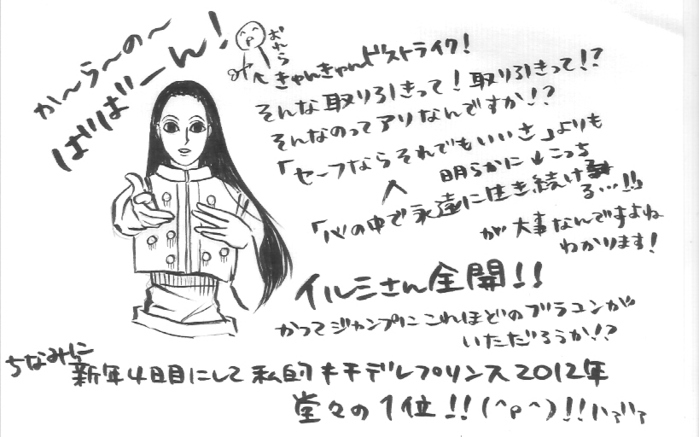 か〜ら〜の〜
ばばーん!
おれら
きゅんきゅんドストライク!
そんな取り引きって!取り引きって!?
そんなのってアリなんですか!?
「セーフならそれでもいいさ」よりも
明らかに↓こっち
「心の中で永遠に生き続ける…!!」
が大事なんですよね
わかります!
イルミさん全開!!
かつてジャンプにこれほどのブラコンが
いただろうか!?
ちなみに
新年4日目にして私的キモデレプリンス2012年
堂々の1位!!(^p^)!!ハァハァ